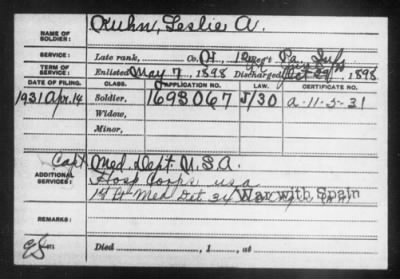 NAME OF SOLDIER: Kuhn, Leslie A.
SERVICE: Late rank, Co. H, 12 Reg't Pa. Inf.
TERM OF SERVICE: Enlisted May 7, 1898 Discharged Oct 29, 1898
DATE OF FILING. CLASS. APPLICATION NO. LAW. CERTIFICATE NO.
1931 Apr. 14 Soldier, 1698067 5/30 a-11-5-31
Widow,
Minor,
ADDITIONAL SERVICES: Capt. Med. Dept. U.S.A.
Hosp Corps U.S.A
1st Lt Med Det. War with Spain
REMARKS:
Died , 1 , at